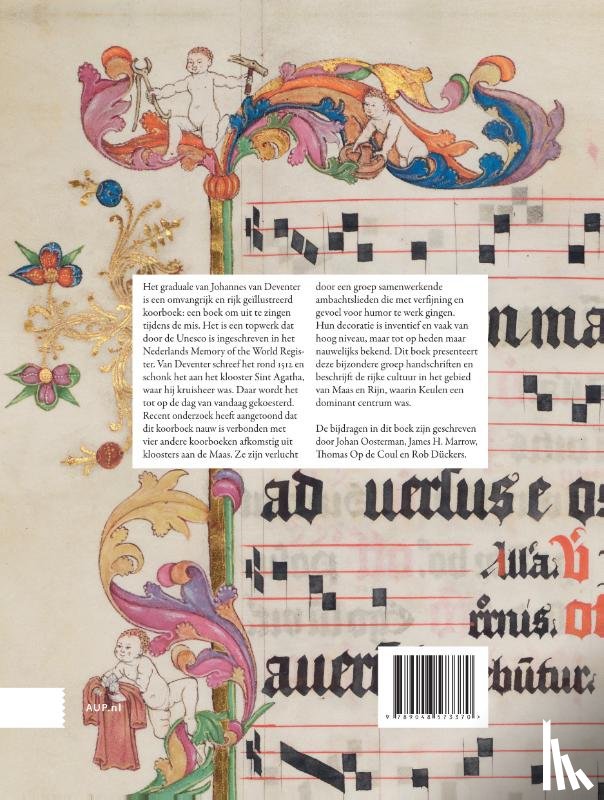 Het graduale van Johannes van Deventer
is een omvangrijk en rijk geïllustreerd
koorboek: een boek om uit te zingen
tijdens de mis. Het is een topwerk dat
door de Unesco is ingeschreven in het
Nederlands Memory of the World Regis-
ter. Van Deventer schreef het rond 1512 en
schonk het aan het klooster Sint Agatha,
waar hij kruisheer was. Daar wordt het
tot op de dag van vandaag gekoesterd.
Recent onderzoek heeft aangetoond dat
dit koorboek nauw is verbonden met
vier andere koorboeken afkomstig uit
kloosters aan de Maas. Ze zijn verlucht
door een groep samenwerkende
ambachtslieden die met verfijning en
gevoel voor humor te werk gingen.
Hun decoratie is inventief en vaak van
hoog niveau, maar tot op heden maar
nauwelijks bekend. Dit boek presenteert
deze bijzondere groep handschriften en
beschrijft de rijke cultuur in het gebied
van Maas en Rijn, waarin Keulen een
dominant centrum was.
De bijdragen in dit boek zijn geschreven
door Johan Oosterman, James H. Marrow,
Thomas Op de Coul en Rob Dückers.
n ma
ad uersus e os
Alla. V
AUP.nl
9 789048 573370 >